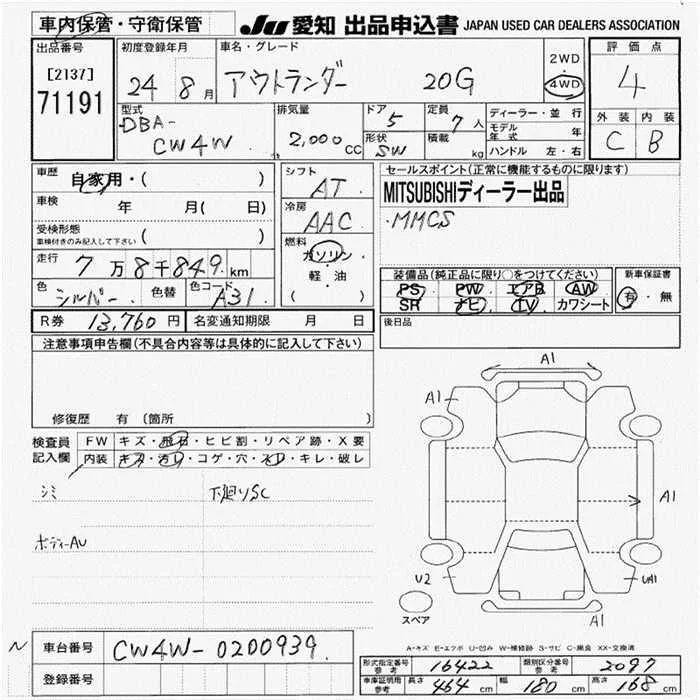 車内保管・守衛保管
JU 愛知 出品申込書 JAPAN USED CAR DEALERS ASSOCIATION
出品番号
[2137]
71191
初度登録年月
24年8月
車名・グレード
アウトランダー 20G
2WD
4WD
評価点
4
外装 内装
C B
型式
DBA-
CW4W
排気量
2,000 cc
ドア 5
形状 SW
定員 7人
積載 kg
ディーラー・並行
モデル年式 年
ハンドル 左・右
車歴 自家用・( )
車検 年 月( 日)
受検形態
車検付きのみ記入して下さい ( )
走行 7万8千849km
色 シルバー 色替 色コード A31
R券 13,760円 名変通知期限 月 日
シフト AT
冷房 AAC
燃料 ガソリン
軽・油
( )
セールスポイント(正常に機能するものに限ります)
MITSUBISHIディーラー出品
・MMCS
装備品(純正品に限り○をつけてください)
PS PW エアB AW
SR ナビ TV カワシート
新車保証書
有・無
後日品
注意事項申告欄(不具合内容等は具体的に記入して下さい)
修復歴 有(箇所 )
検査員記入欄
FW キズ・飛石・ヒビ割・リペア跡・X要
内装 キズ・汚レ・コゲ・穴・スレ・キレ・破レ
シミ 下廻りSC
ボディーAU
A1
A1
A1
U2
UA1
A1
スペア
A-キズ E-エクボ U-凹み W-補修跡 S-サビ C-腐食 XX-交換済
N 車台番号 CW4W-0200939
登録番号
形式指定番号参考 16422 類別区分番号参考 2097
車庫証明用参考 長さ 464cm 幅 180cm 高さ 168cm